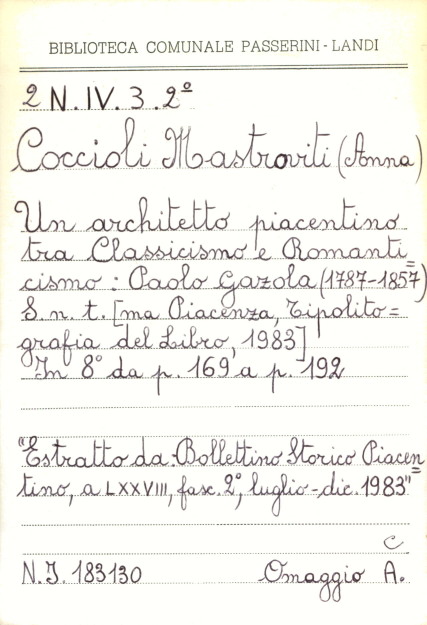 BIBLIOTECA COMUNALE PASSERINI - LANDI
2 N. IV. 3. 2º
Coccioli Mastroviti (Anna)
Un architetto piacentino
tra Classicismo e Romanti=
cismo : Paolo Gazola (1787-1857)
S. n. t. [ma Piacenza, Tipolito=
grafia del Libro, 1983]
In 8° da p. 169 a p. 192
"Estratto da: Bollettino Storico Piacen=
tino, a LXXVIII, fasc. 2º, luglio-dic. 1983"
C
N.I. 183130 Omaggio A.